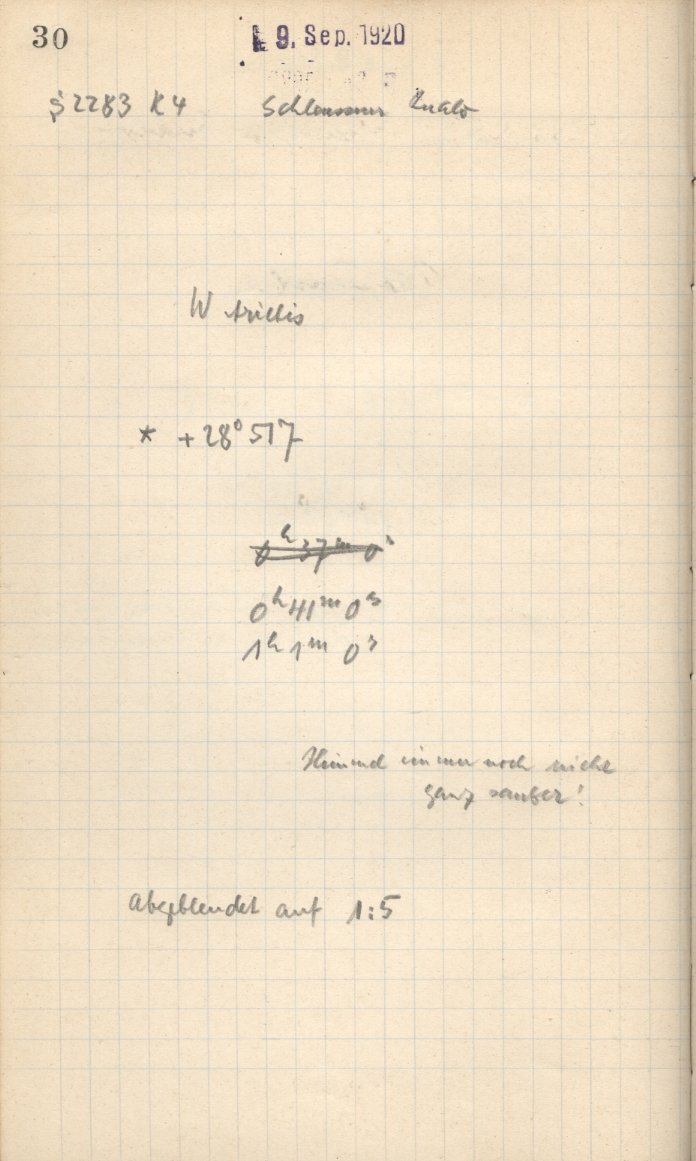 30
9. Sep. 1920
S 2283 K4 Schleussner
W Arietis
* +28° 517
0h 37m 0s
0h 41m 0s
1h 1m 0s
Himmel immer noch nicht
ganz sauber!
abgeblendet auf 1:5